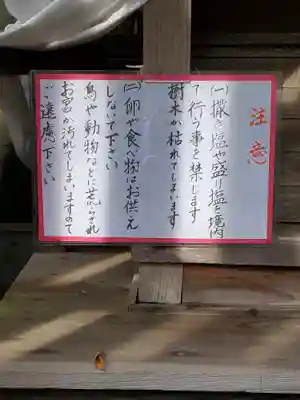 注意
㈠撒き塩や盛り塩を境内
で行う事を禁じます
樹木が枯れてしまいます
㈡卵や食べ物はお供え
しないで下さい
鳥や動物などに荒らされ
お宮が汚れてしまいますので
ご遠慮下さい